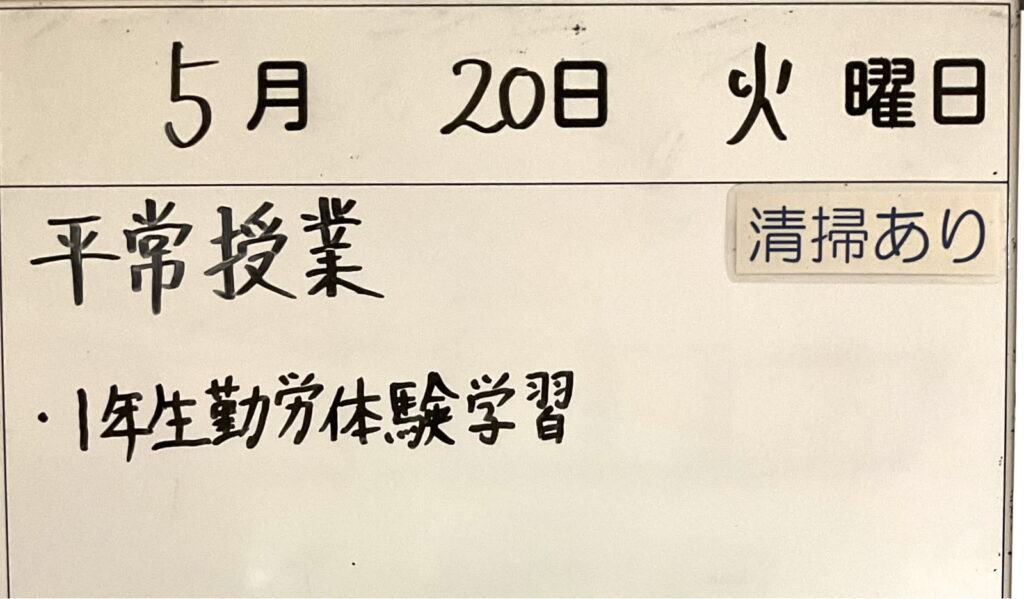 5月 20日 火曜日
平常授業 清掃あり
・1年生勤労体験学習